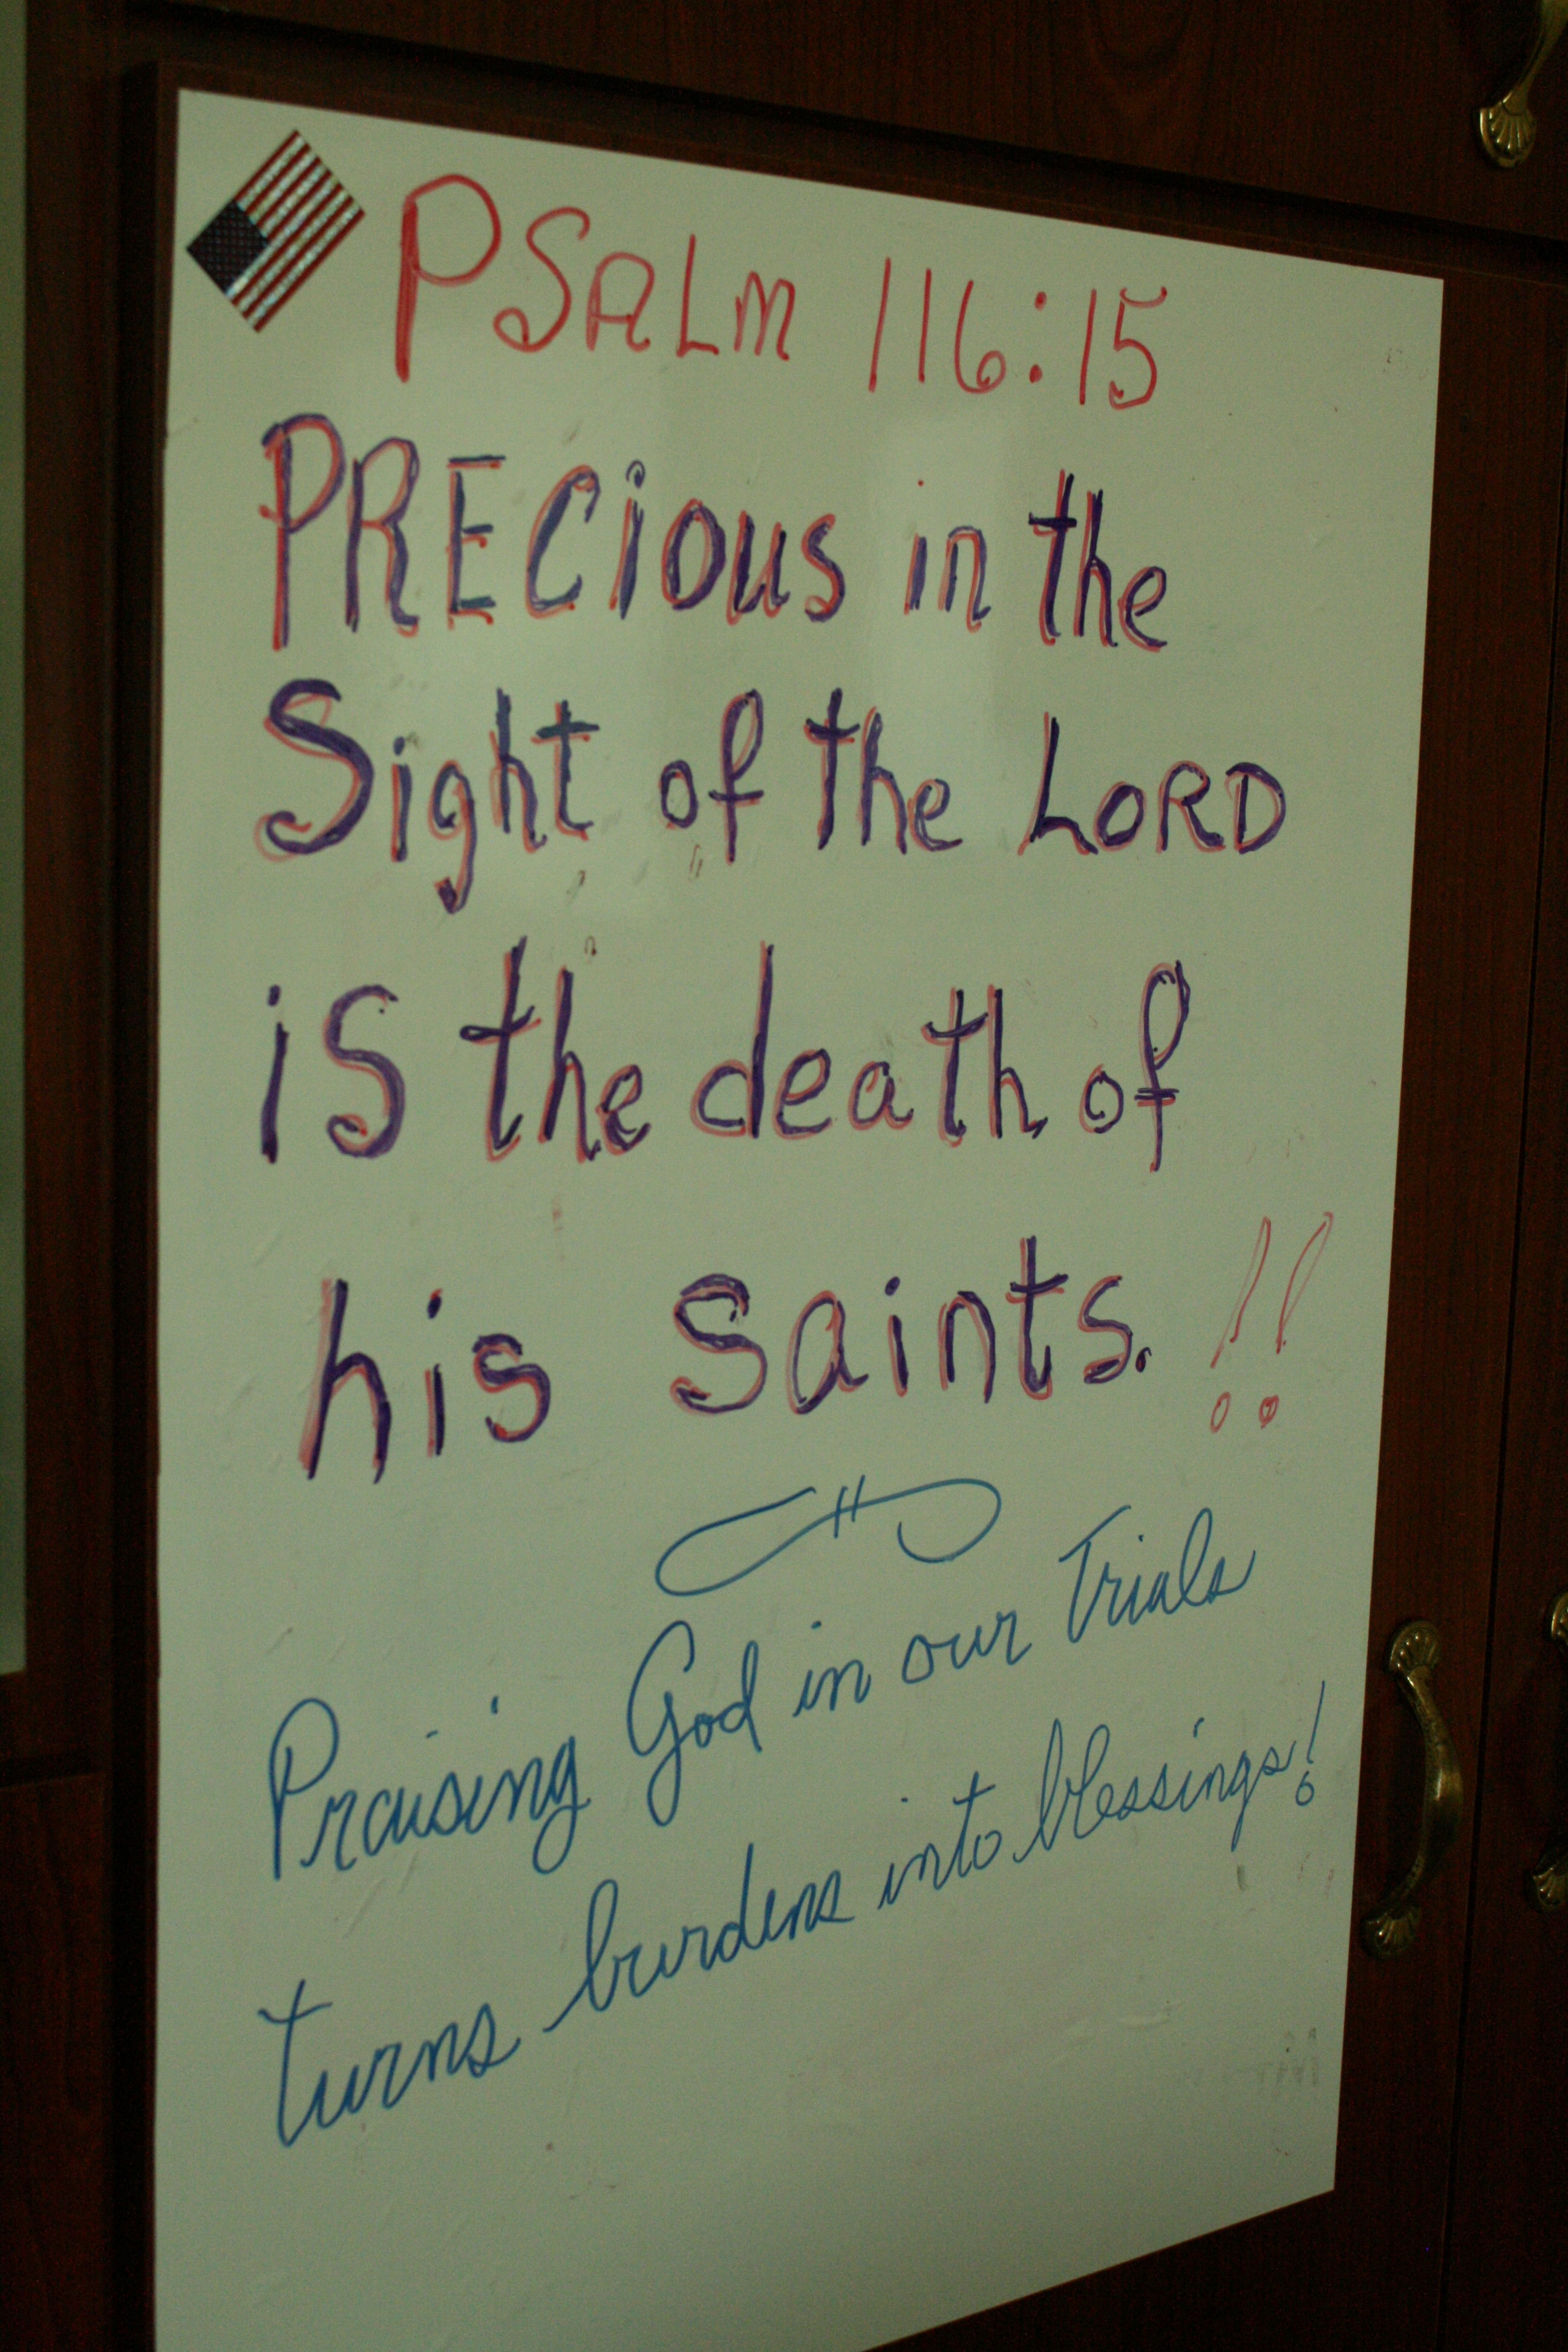 PSALM 116:15
PRECious in the
Sight of the LORD
is the death of
his Saints. !!
Praising God in our Trials
turns burdens into blessings!